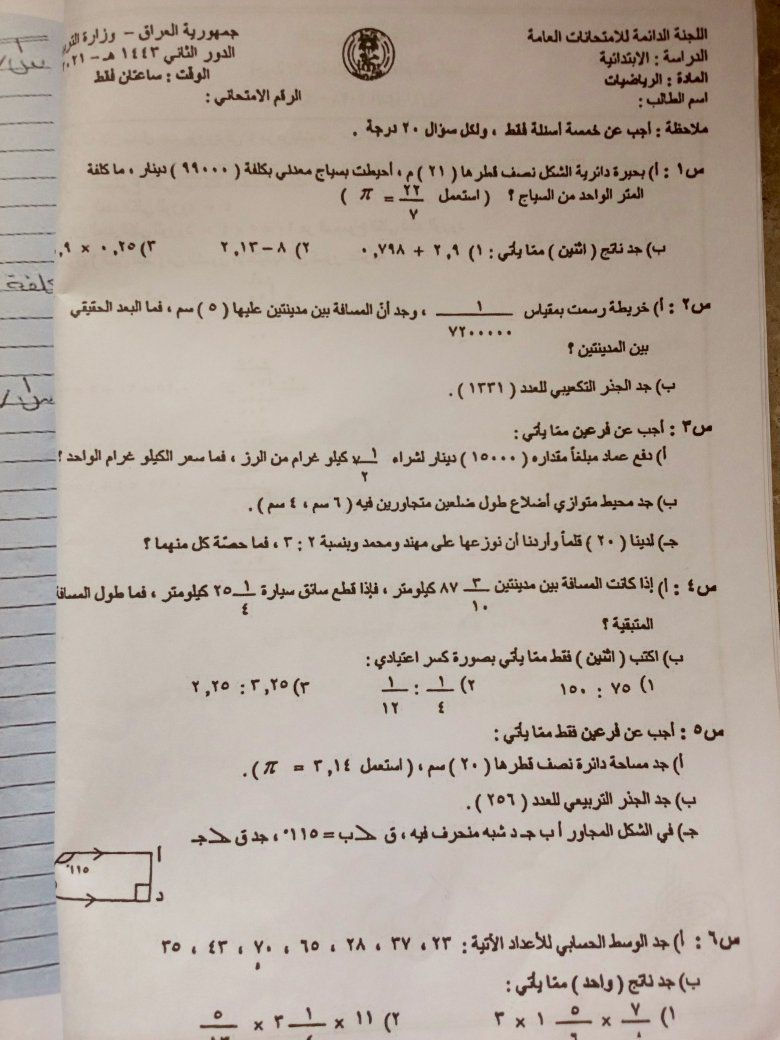 اللجنة الدائمة للامتحانات العامة
الدراسة : الابتدائية
المادة : الرياضيات
اسم الطالب :
جمهورية العراق - وزارة
الدور الثاني ١٤٤٣ هـ - ٢٠٢١
الوقت : ساعتان فقط
الرقم الامتحاني :
ملاحظة : أجب عن خمسة أسئلة فقط ، ولكل سؤال ٢٠ درجة .
س١ : أ) بحيرة دائرية الشكل نصف قطرها ( ٢١ ) م ، أحيطت بسياج معدني بكلفة ( ٩٩٠٠٠ ) دينار ، ما كلفة
المتر الواحد من السياج ؟ ( استعمل ٢٢/٧ = π )
ب) جد ناتج ( اثنين ) ممّا يأتي : ١) ٢,٩ + ٠,٧٩٨ ٢) ٨ – ٢,١٣ ٣) ٠,٢٥ ×
س٢ : أ) خريطة رسمت بمقياس ١/٧٢٠٠٠٠٠ ، وجد أنّ المسافة بين مدينتين عليها ( ٥ ) سم ، فما البعد الحقيقي
بين المدينتين ؟
ب) جد الجذر التكعيبي للعدد ( ١٣٣١ ) .
س٣ : أجب عن فرعين ممّا يأتي :
أ) دفع عماد مبلغاً مقداره ( ١٥٠٠٠ ) دينار لشراء ٧ ١/٢ كيلو غرام من الرز ، فما سعر الكيلو غرام الواحد ؟
ب) جد محيط متوازي أضلاع طول ضلعين متجاورين فيه ( ٦ سم ، ٤ سم ) .
جـ) لدينا ( ٢٠ ) قلماً وأردنا أن نوزعها على مهند ومحمد وبنسبة ٢ : ٣ ، فما حصّة كل منهما ؟
س٤ : أ) إذا كانت المسافة بين مدينتين ٨٧ ٣/١٠ كيلومتر ، فإذا قطع سائق سيارة ٢٥ ١/٤ كيلومتر ، فما طول المسافة
المتبقية ؟
ب) اكتب ( اثنين ) فقط ممّا يأتي بصورة كسر اعتيادي :
١) ٧٥ : ١٥٠ ٢) ١/٤ : ١/١٢ ٣) ٣,٢٥ : ٢,٢٥
س٥ : أجب عن فرعين فقط ممّا يأتي :
أ) جد مساحة دائرة نصف قطرها ( ٢٠ ) سم ، ( استعمل ٣,١٤ = π ) .
ب) جد الجذر التربيعي للعدد ( ٢٥٦ ) .
جـ) في الشكل المجاور أ ب جـ د شبه منحرف فيه ، ق ∠ب = ١١٥° ، جد ق ∠جـ
أ
١١٥°
د
س٦ : أ) جد الوسط الحسابي للأعداد الآتية : ٢٣ ، ٣٧ ، ٢٨ ، ٦٥ ، ٧٠ ، ٤٣ ، ٣٥
ب) جد ناتج ( واحد ) ممّا يأتي :